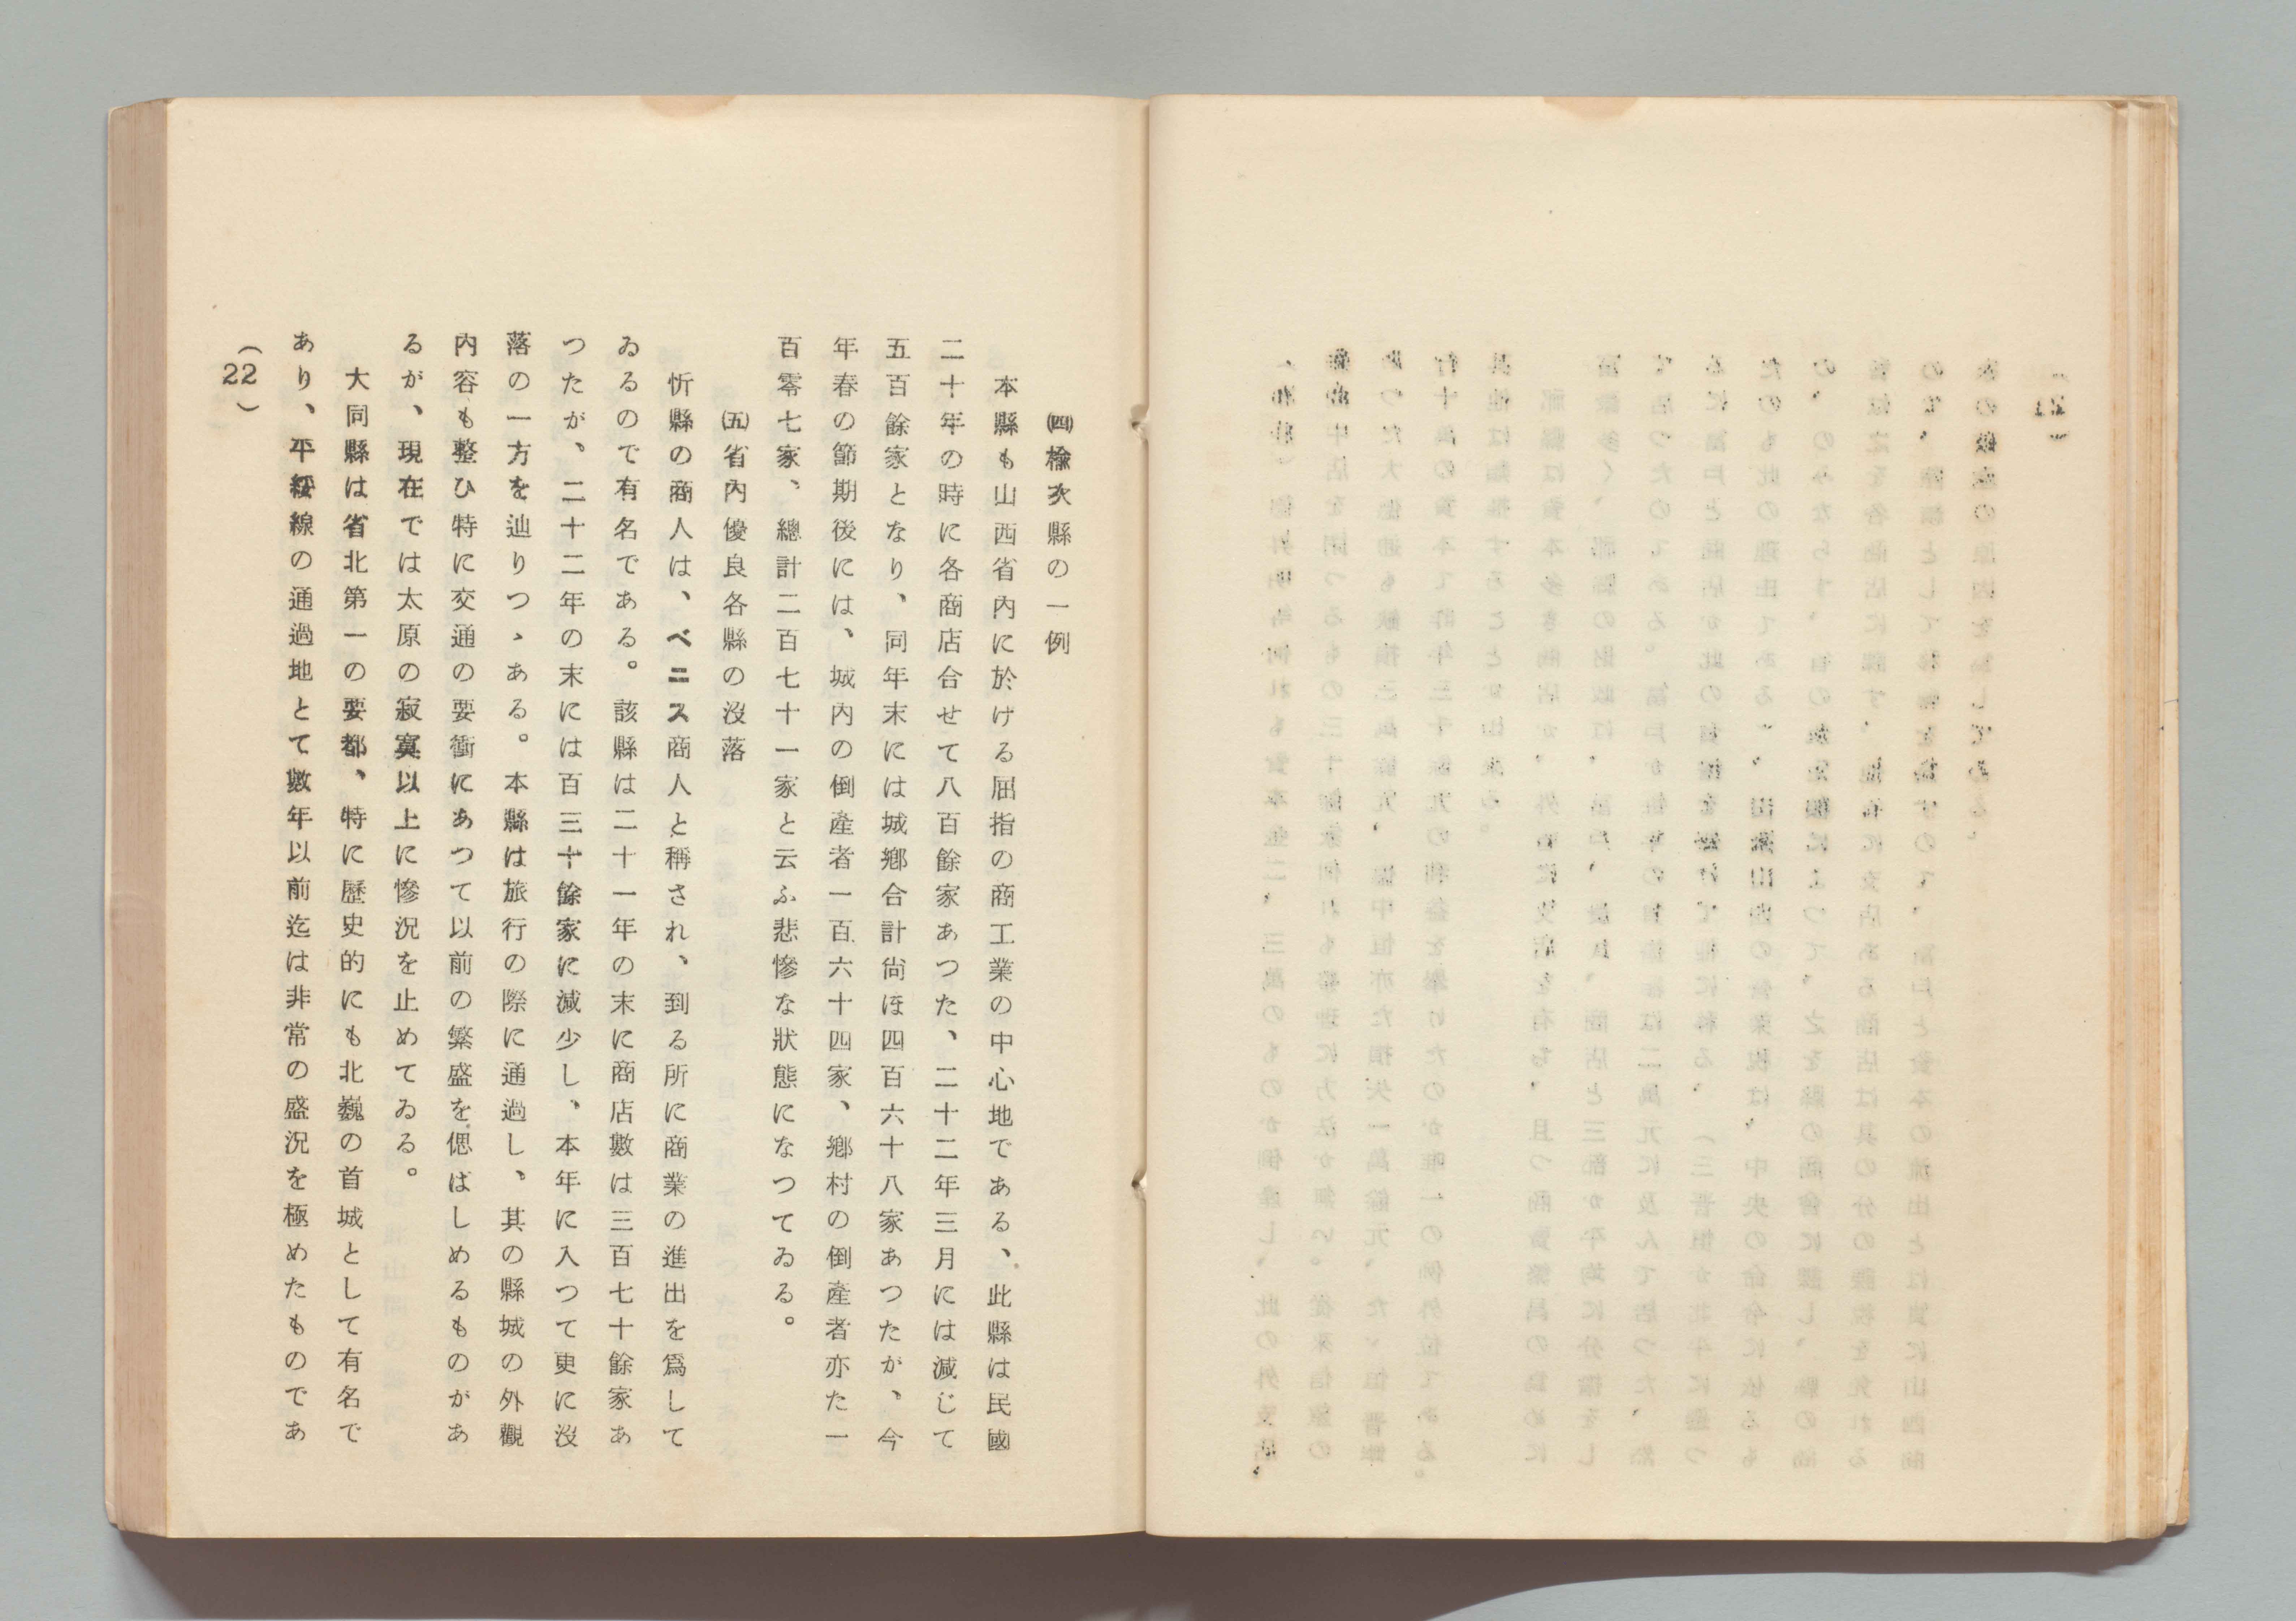 ㈣楡次縣の一例
本縣も山西省內に於ける屈指の商工業の中心地である、此縣は民國
二十年の時に各商店合せて八百餘家あつた、二十二年三月には減じて
五百餘家となり、同年末には城鄕合計尙ほ四百六十八家あつたが、今
年春の節期後には、城內の倒產者一百六十四家、鄕村の倒產者亦た一
百零七家、總計二百七十一家と云ふ悲慘な狀態になつてゐる。
㈤省內優良各縣の沒落
忻縣の商人は、ベニス商人と稱され、到る所に商業の進出を爲して
ゐるので有名である。該縣は二十一年の末に商店數は三百七十餘家あ
つたが、二十二年の末には百三十餘家に減少し、本年に入つて更に沒
落の一方を辿りつゝある。本縣は旅行の際に通過し、其の縣城の外觀
內容も整ひ特に交通の要衝にあつて以前の繁盛を偲ばしめるものがあ
るが、現在では太原の寂寞以上に慘況を止めてゐる。
大同縣は省北第一の要都、特に歷史的にも北巍の首城として有名で
あり、平綏線の通過地とて數年以前迄は非常の盛況を極めたものであ
(22)